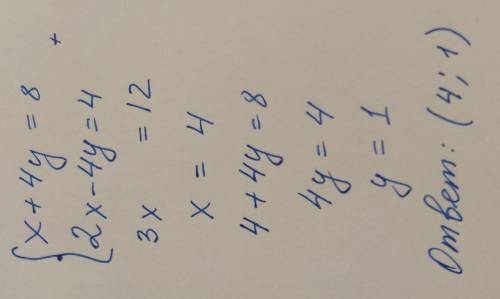 x + 4y = 8 +
2x - 4y = 4
3x = 12
x = 4
4 + 4y = 8
4y = 4
y = 1
Ответ: (4; 1)